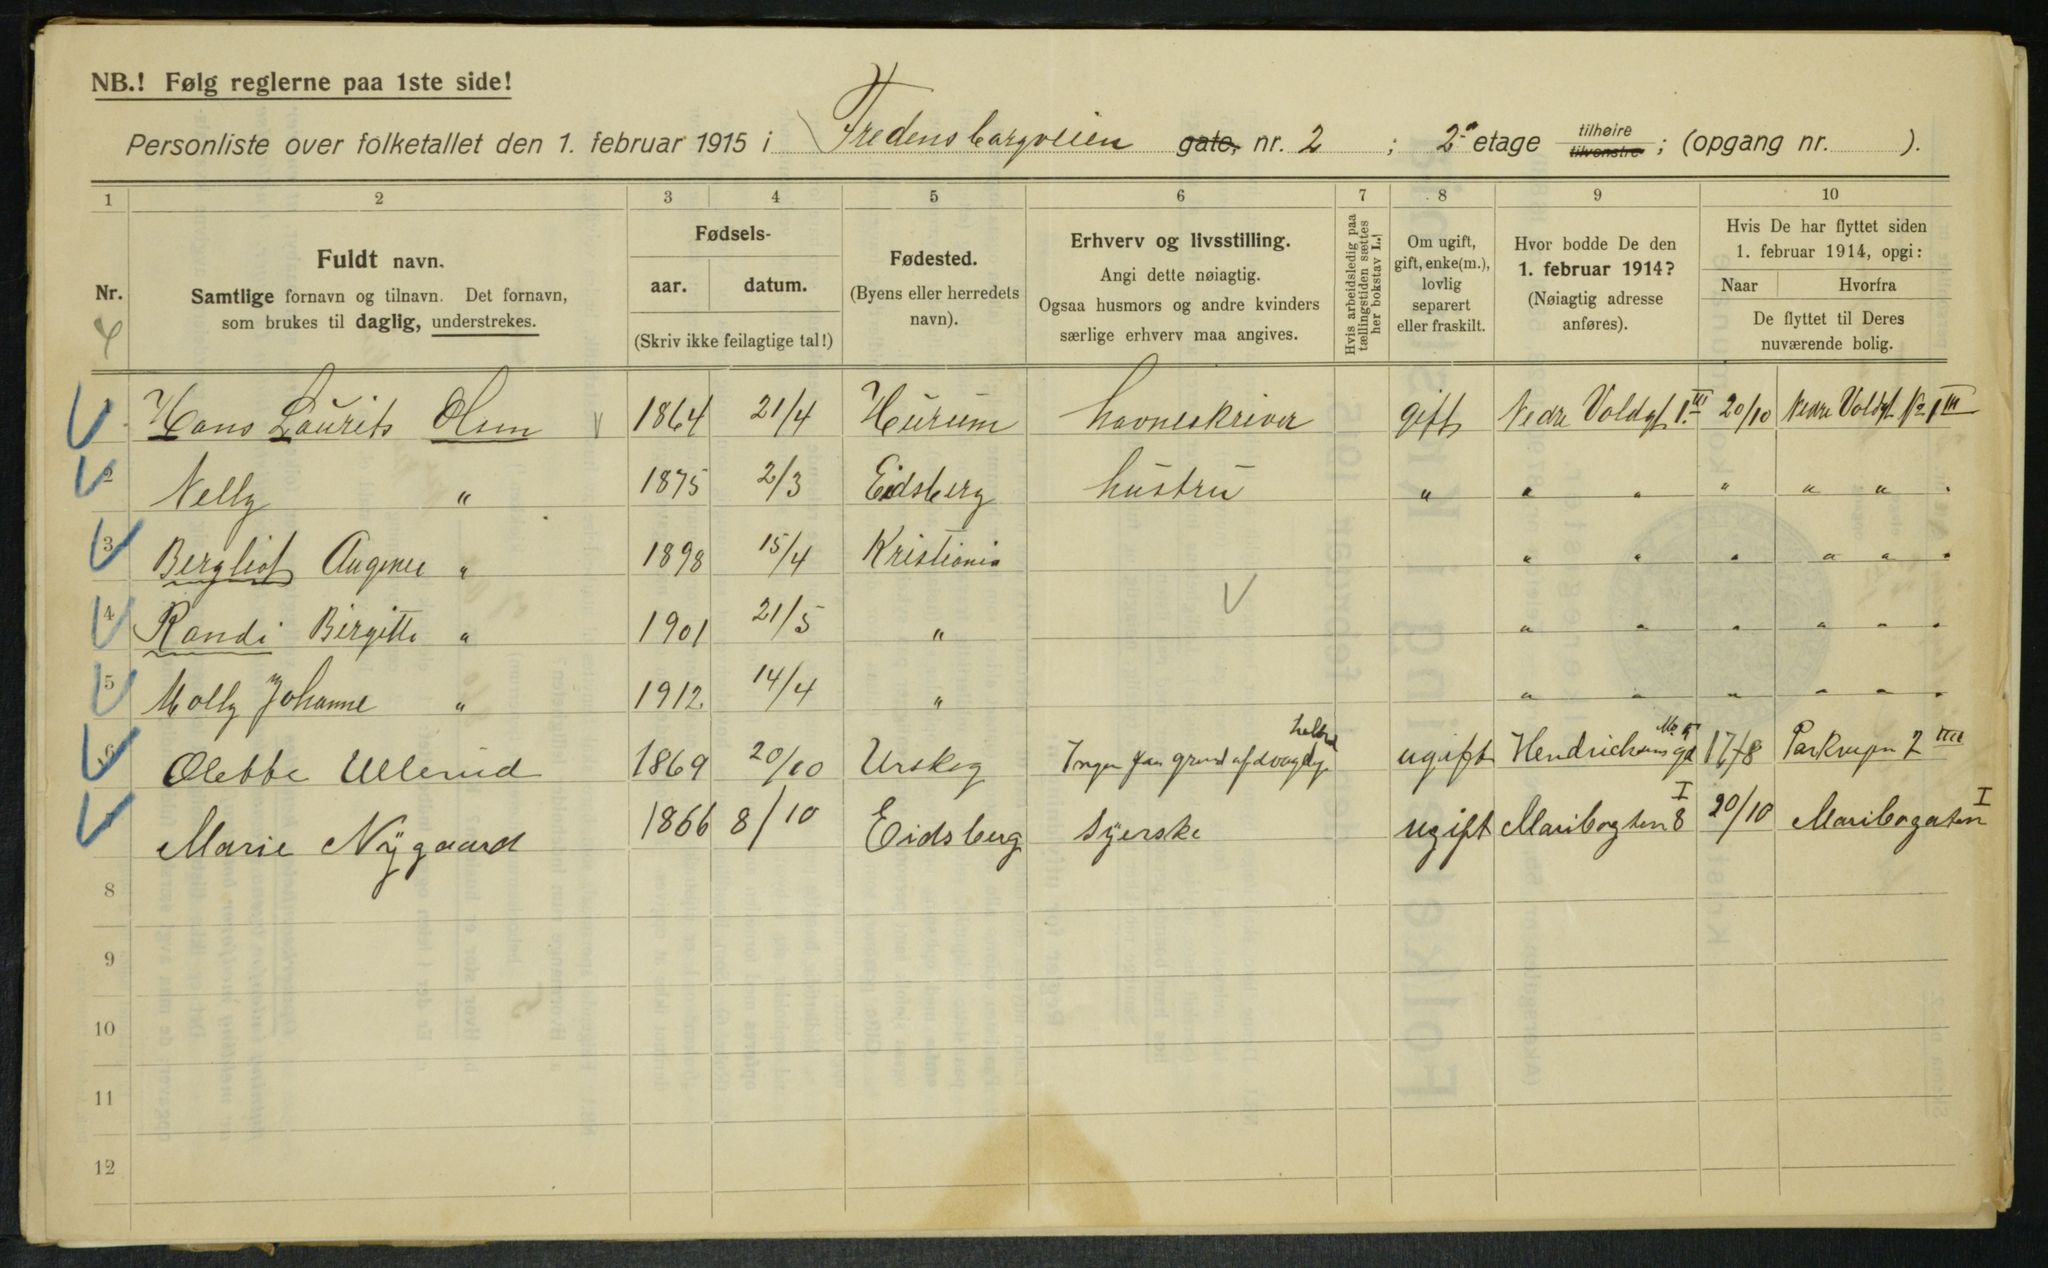 NB.! Følg reglerne paa 1ste side!
Personliste over folketallet den 1. februar 1915 i Fredensborgveien gate, nr. 2 ; 2 etage tilhøire tilvenstre ; (opgang nr. ).
1 2 3 4 5 6 7 8 9 10
Nr.
Fuldt navn.
Samtlige fornavn og tilnavn. Det fornavn,
som brukes til daglig, understrekes.
Fødsels-
aar. datum.
(Skriv ikke feilagtige tal!)
Fødested.
(Byens eller herredets
navn).
Erhverv og livsstilling.
Angi dette nøiagtig.
Ogsaa husmors og andre kvinders
særlige erhverv maa angives.
Hvis arbeidsledig paa
tællingstiden sættes
her bokstav L.!
Om ugift,
gift, enke(m.),
lovlig
separert
eller fraskilt.
Hvor bodde De den
1. februar 1914?
(Nøiagtig adresse
anføres).
Hvis De har flyttet siden
1. februar 1914, opgi:
Naar Hvorfra
De flyttet til Deres
nuværende bolig.
Hans Laurits Olsen 1864 21/4 Hurum havneskriver gift Nedre Voldgt 1.III 20/10 Nedre Voldgt No 1 III
2 Nelly " 1875 2/3 Eidsberg hustru " " " " " " "
3 Bergliot " 1898 15/4 Kristiania " " " " " "
4 Randi Birgitte " 1901 21/5 " " " " " " "
5 Molly Johanne " 1912 14/4 " " " " " " "
6 Olebbe Ullerud 1869 20/10 Urskog Ingen paa grund af svagelig helbred ugift 17/8 2 III
Marie Nygaard 1866 8/10 Eidsberg syerske ugift Maribogten 8 I 20/10 Maribogaten I
8
9
10
11
12